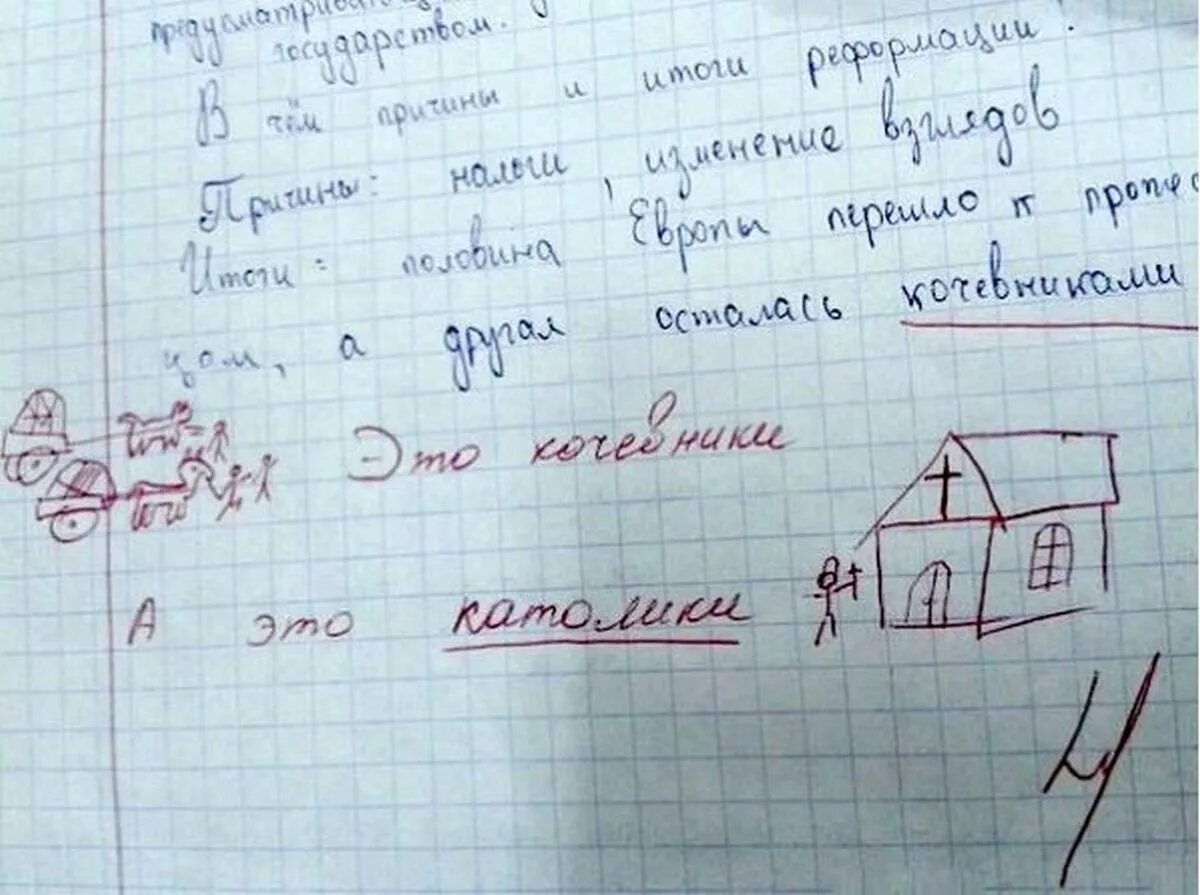 государством.
В чём причины и итоги реформации?
Причины: налоги, изменение взглядов
Итоги: половина Европы перешло к протес
цом, а другая осталась кочевниками
Это кочевники
А это католики
4